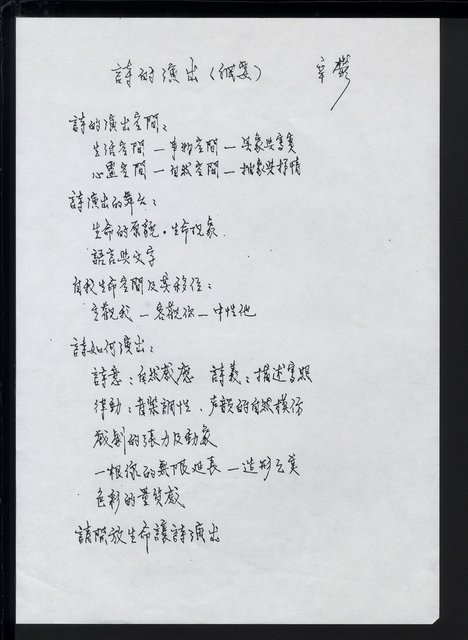 詩的演出(綱要) 辛鬱
詩的演出空間：
生活空間—事物空間—具象與寫實
心靈空間—自然空間—抽象與抒情
詩演出的舞台：
生命的原貌·生命現象
語言與文字
自我生命空間及其移位：
主觀我—客觀你—中性他
詩如何演出：
詩意：自然感應 詩義：描述寫照
律動：音樂調性、声韻的自然模仿
戲劇的張力及動象
一根線的無限延長—造形之美
色彩的量質感
請開放生命讓詩演出